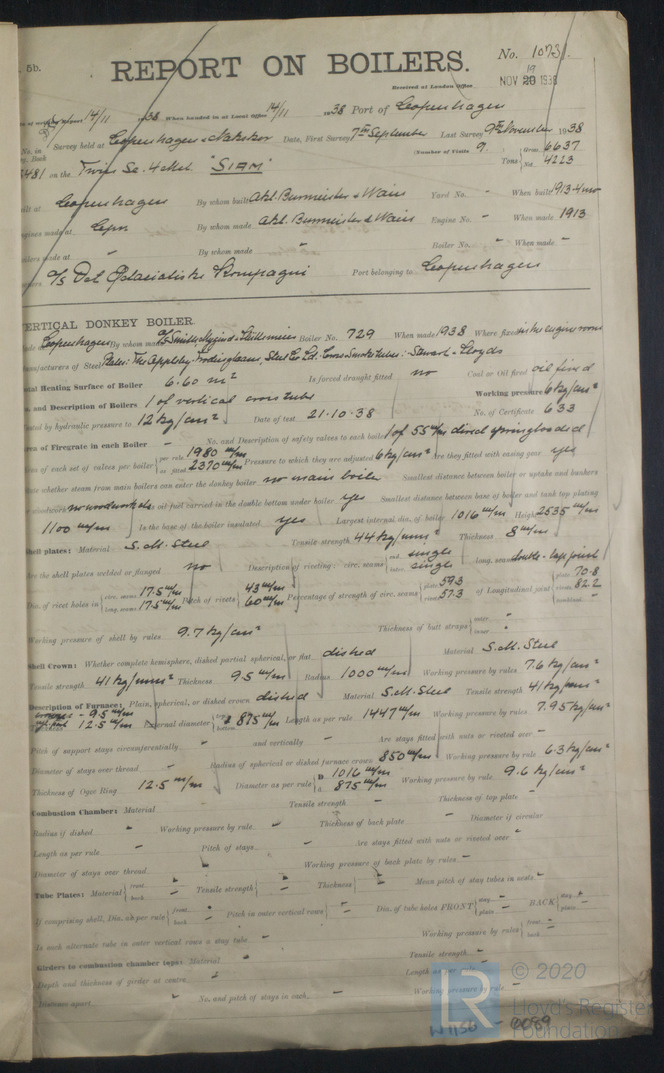 5b.
REPORT ON BOILERS.
No. 10731.
Received at London Office
19
NOV 20 1938
14/11 1938 When handed in at Local Office 14/11 1938 Port of Copenhagen
No. in Survey held at Copenhagen & Nakskov Date, First Survey 7th September Last Survey 9th November 1938
Reg. Book (Number of Visits 9
481 on the Twin Sc. 4 Mst. "SIAM" Tons Gross 6637 Net 4223
Built at Copenhagen By whom built Akt. Burmeister & Wain Yard No. - When built 1913-4mo
Engines made at Cpn By whom made Akt. Burmeister & Wain Engine No. - When made 1913
Boilers made at " By whom made " Boiler No. " When made -
Owners A/S Det Østasiatiske Kompagni Port belonging to Copenhagen
VERTICAL DONKEY BOILER.
Made at Copenhagen By whom made Boiler No. 729 When made 1938 Where fixed in the engine room
Manufacturers of Steel Plates: The Appleby-Frodingham Steel Co Ld. Cross & smoke tubes: Stewart & Lloyds
Total Heating Surface of Boiler 6.60 m² Is forced draught fitted no Coal or Oil fired oil fired
No. and Description of Boilers 1 of vertical cross tube Working pressure 6 kg/cm²
Tested by hydraulic pressure to 12 kg/cm² Date of test 21.10.38 No. of Certificate 633
Area of Firegrate in each Boiler - No. and Description of safety valves to each boiler 1 of 55 m/m direct spring loaded
Area of each set of valves per boiler per rule 1980 m/m as fitted 2370 m/m Pressure to which they are adjusted 6 kg/cm² Are they fitted with easing gear yes
State whether steam from main boilers can enter the donkey boiler no main boiler Smallest distance between boiler or uptake and bunkers
or woodwork no woodwork etc Is oil fuel carried in the double bottom under boiler yes Smallest distance between base of boiler and tank top plating
1100 m/m Is the base of the boiler insulated yes Largest internal dia. of boiler 1016 m/m Height 2535 m/m
Shell plates: Material S.M. Steel Tensile strength 44 kg/mm² Thickness 8 m/m
Are the shell plates welded or flanged no Description of riveting: circ. seams end single inter. single long. seams double-lap joint
Dia. of rivet holes in circ. seams 17.5 m/m long. seams 17.5 m/m Pitch of rivets 43 m/m 60 m/m Percentage of strength of circ. seams plate 59.3 rivets 57.3 of Longitudinal joint plate 70.8 rivets 82.2 combined -
Working pressure of shell by rules 9.7 kg/cm² Thickness of butt straps outer - inner -
Shell Crown: Whether complete hemisphere, dished partial spherical, or flat dished Material S.M. Steel
Tensile strength 41 kg/mm² Thickness 9.5 m/m Radius 1000 m/m Working pressure by rules 7.6 kg/cm²
Description of Furnace: Plain, spherical, or dished crown dished Material S.M. Steel Tensile strength 41 kg/mm²
- 9.5 m/m 12.5 m/m External diameter top bottom 875 m/m Length as per rule 1447 m/m Working pressure by rules 7.95 kg/cm²
Pitch of support stays circumferentially - and vertically - Are stays fitted with nuts or riveted over -
Diameter of stays over thread - Radius of spherical or dished furnace crown 850 m/m Working pressure by rule 6.3 kg/cm²
Thickness of Ogee Ring 12.5 m/m Diameter as per rule D. 1016 m/m d. 875 m/m Working pressure by rule 9.6 kg/cm²
Combustion Chamber: Material Tensile strength - Thickness of top plate -
Radius if dished - Working pressure by rule - Thickness of back plate - Diameter if circular -
Length as per rule - Pitch of stays - Are stays fitted with nuts or riveted over -
Diameter of stays over thread - Working pressure of back plate by rules -
Tube Plates: Material front - back - Tensile strength - Thickness - Mean pitch of stay tubes in nests -
If comprising shell, Dia. as per rule front - back - Pitch in outer vertical rows - Dia. of tube holes FRONT stay - plain - BACK stay - plain -
Is each alternate tube in outer vertical rows a stay tube - Working pressure by rules front - back -
Girders to combustion chamber tops: Material - Tensile strength -
Depth and thickness of girder at centre - Length as
Distance apart - No. and pitch of stays in each - Working pressure by rule -
© 2020
LR
Lloyd's Register
Foundation
W1156 - 0089